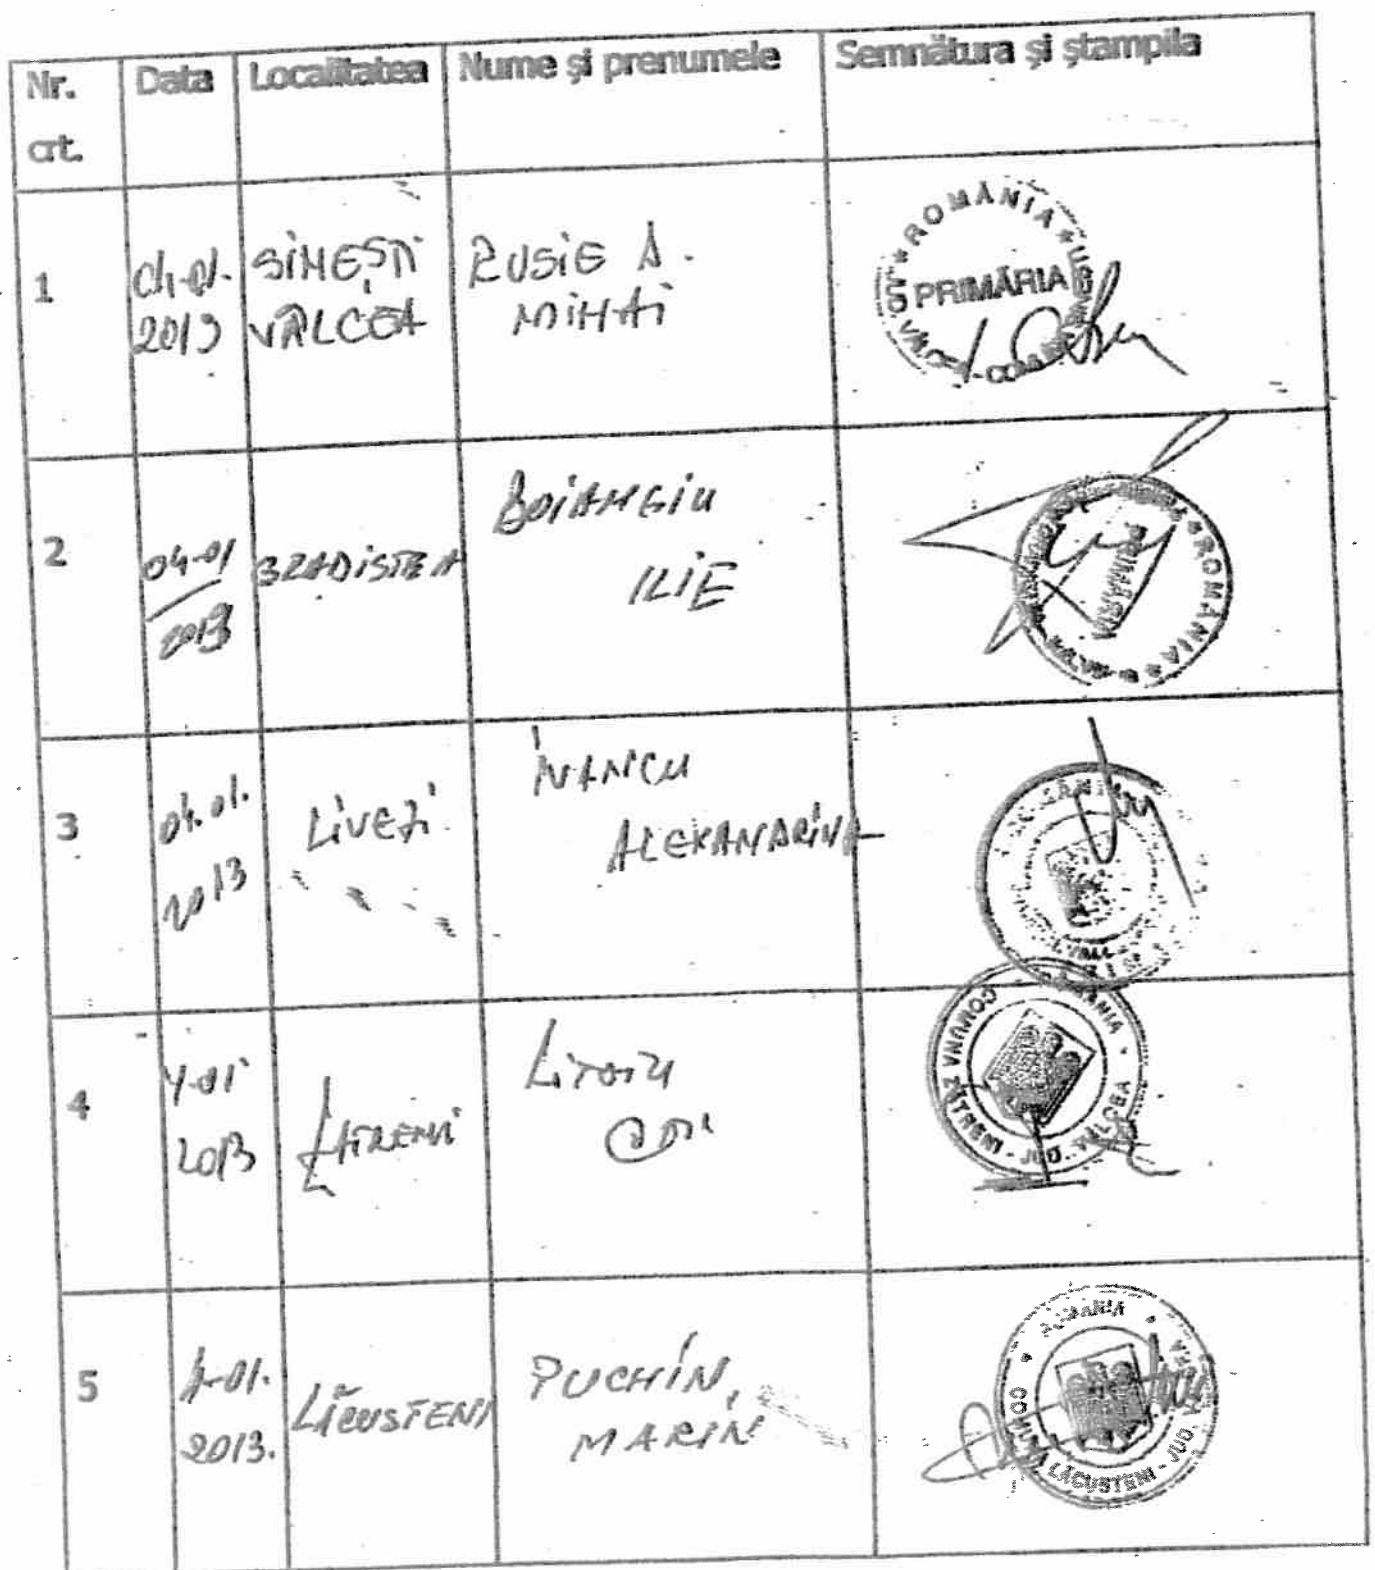 Nr. crt. Data Localitatea Nume și prenumele Semnătura și ștampila
1 04-01. 2013 SINEȘTI VÂLCEA RUSIE A. MIHAI
ROMÂNIA PRIMĂRIA
2 04-01 2013 GRADISTEA BOIANGIU ILIE
ROMÂNIA PRIMĂRIA
3 04.01. 2013 Livezi IVANCU ALEXANDRINA
4 4-01 2013 ZĂTRENI
COMUNA ZĂTRENI - JUD. VÂLCEA
5 4-01. 2013. LĂCUSTENI PUCHIN, MARIN
ROMANIA COMUNA LĂCUSTENI - JUD.